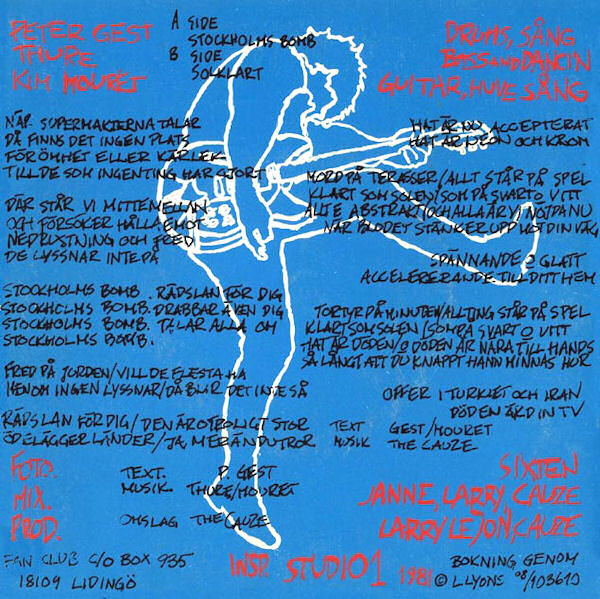 PETER GEST
THURE
KIM MOURET
A SIDE
STOCKHOLMS BOMB
B SIDE
SOLKLART
DRUMS, SÅNG
BASS AND DANCIN
GUITAR, HUVESÅNG
NÄR SUPERMAKTERNA TALAR
DÅ FINNS DET INGEN PLATS
FÖR ÖMHET ELLER KÄRLEK
TILL DE SOM INGENTING HAR GJORT
DÄR STÅR VI MITTEMELLAN
OCH FÖRSÖKER HÅLLA EMOT
NEDRUSTNING OCH FRED
DE LYSSNAR INTE PÅ
STOCKHOLMS BOMB. RÄDSLAN FÖR DIG
STOCKHOLMS BOMB. DRABBAR ÄVEN DIG
STOCKHOLMS BOMB. TALAR ALLA OM
STOCKHOLMS BOMB.
FRED PÅ JORDEN/VILL DE FLESTA HA
MENOM INGEN LYSSNAR/DÅ BLIR DET INTE SÅ
RÄDSLAN FÖR DIG/DEN ÄR OTROLIGT STOR
ÖDELÄGGER LÄNDER/JA, MER ÄN DU TROR
TEXT. P. GEST
MUSIK THURE/MOURET
OMSLAG THE CAUZE
HAT ÄR NU ACCEPTERAT
HAT ÄR NEON OCH KROM
MORD PÅ TERASSER/ALLT STÅR PÅ SPEL
KLART SOM SOLEN/SOM PÅ SVART O VITT
ALLT E ABSTRAKT (OCH ALLA ÄR) NÖJDA NU
NÄR BLODET STÄNKER UPP MOT DIN VÄG
SPÄNNANDE O GLATT
ACCELERERANDE TILL DITT HEM
TORTYR PÅ MINUTEN/ALLTING STÅR PÅ SPEL
KLART SOM SOLEN/SOM PÅ SVART O VITT
HAT ÄR DÖDEN/O DÖDEN ÄR NÄRA TILL HANDS
SÅ LÅNGT ATT DU KNAPPT HANN MINNAS HUR
OFFER I TURKIET OCH IRAN
DÖDEN ÄKD IN TV
TEXT GEST/MOURET
MUSIK THE CAUZE
FOTO. SIXTEN
MIX. JANNE, LARRY, CAUZE
PROD. LARRY LEJON, CAUZE
FAN CLUB C/O BOX 935
18109 LIDINGÖ
INSR STUDIO 1 1981
BOKNING GENOM
© L LYONS 08/103610